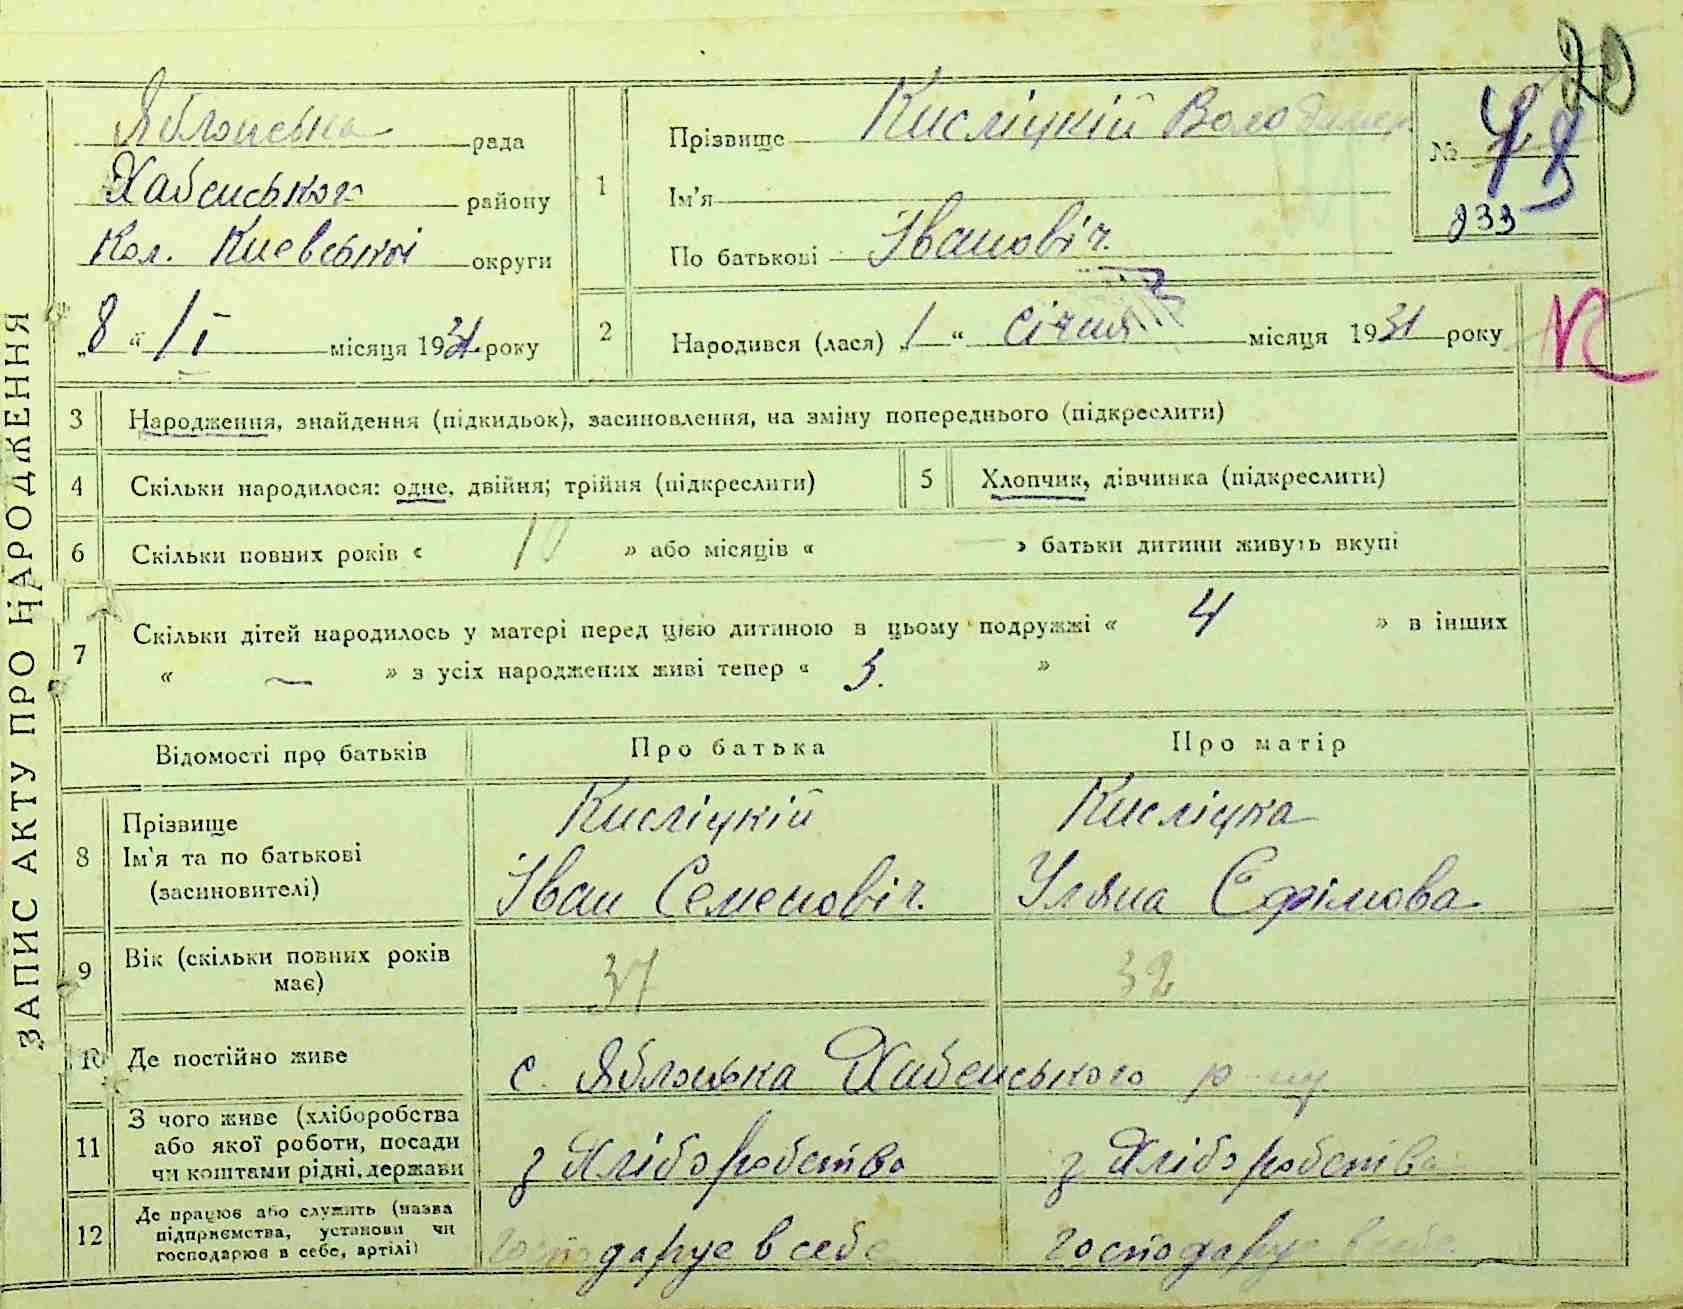 20
ЗАПИС АКТУ ПРО НАРОДЖЕННЯ
Яблонська рада
Хабенського району
Кол. Киевської округи
„8 “ I місяця 1931 року
1
Прізвище Кисліцкій Володимир
Ім'я
По батькові Іванович.
№
033
2
Народився (лася) „1 “ Січня місяця 1931 року
3 Народження, знайдення (підкидьок), засиновлення, на зміну попереднього (підкреслити)
4 Скільки народилося: одне, двійня; трійня (підкреслити)
5 Хлопчик, дівчинка (підкреслити)
6 Скільки повних років « 10 » або місяців « — » батьки дитини живуть вкупі
7 Скільки дітей народилось у матері перед цією дитиною в цьому подружжі « 4 » в інших
« — » з усіх народжених живі тепер « 5. »
Відомості про батьків Про батька Про матір
8 Прізвище Ім'я та по батькові (засиновителі)
Кисліцкій Кисліцка
Іван Семеновіч. Уляна Єфімова
9 Вік (скільки повних років має) 37 32
10 Де постійно живе с. Яблонька Хабенського р-ну
11 З чого живе (хліборобства
або якої роботи, посади
чи коштами рідні, держави
з Хліборобства з Хліборобства
12 Де працює або служить (назва
підприємства, установи чи
господарює в себе, артілі)
господарує в себе господарує в себе